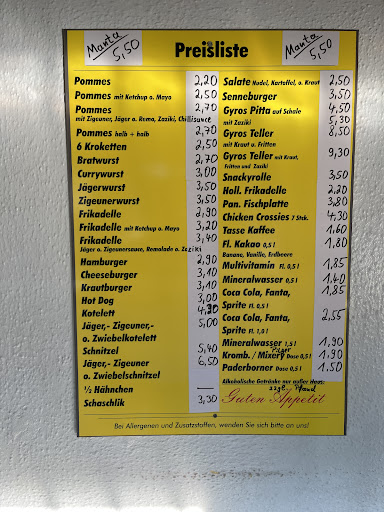 Manta
5,50
Preisliste
Manta
5,50
Pommes 2,20
Pommes mit Ketchup o. Mayo 2,50
Pommes 2,70
mit Zigeuner, Jäger o. Remo, Zaziki, Chillisauce
Pommes halb + halb 2,70
6 Kroketten 2,50
Bratwurst 2,70
Currywurst 3,00
Jägerwurst 3,50
Zigeunerwurst 3,50
Frikadelle 2,90
Frikadelle mit Ketchup o. Mayo 3,20
Frikadelle 3,40
Jäger o. Zigeunersauce, Remolade o. Zaziki
Hamburger 2,90
Cheeseburger 3,10
Krautburger 3,10
Hot Dog 3,00
Kotelett 4,30
Jäger,- Zigeuner,- 5,00
o. Zwiebelkotelett
Schnitzel 5,40
Jäger,- Zigeuner 6,50
o. Zwiebelschnitzel
½ Hähnchen —
Schaschlik 3,30
Salate Nudel, Kartoffel, o. Kraut 2,50
Senneburger 3,50
Gyros Pitta auf Schale 4,50
mit Zaziki 5,30
Gyros Teller 8,50
mit Kraut u. Fritten
Gyros Teller mit Kraut, 9,30
Fritten und Zaziki
Snackyrolle 3,50
Holl. Frikadelle 2,20
Pan. Fischplatte 3,80
Chicken Crossies 7 Stck. 4,30
Tasse Kaffee 1,60
Fl. Kakao 0,5 l 1,80
Banane, Vanille, Erdbeere
Multivitamin Fl. 0,5 l 1,85
Mineralwasser 0,5 l 1,40
Coca Cola, Fanta, 1,85
Sprite Fl. 0,5 l
Coca Cola, Fanta, 2,55
Sprite Fl. 1,0 l
Mineralwasser 1,5 l 1,90
Kromb. / Mixery Dose 0,5 l 1,90
Paderborner Dose 0,5 l 1.50
Alkoholische Getränke nur außer Haus:
zzgl. Pfand
Guten Appetit
Bei Allergenen und Zusatzstoffen, wenden Sie sich bitte an uns!